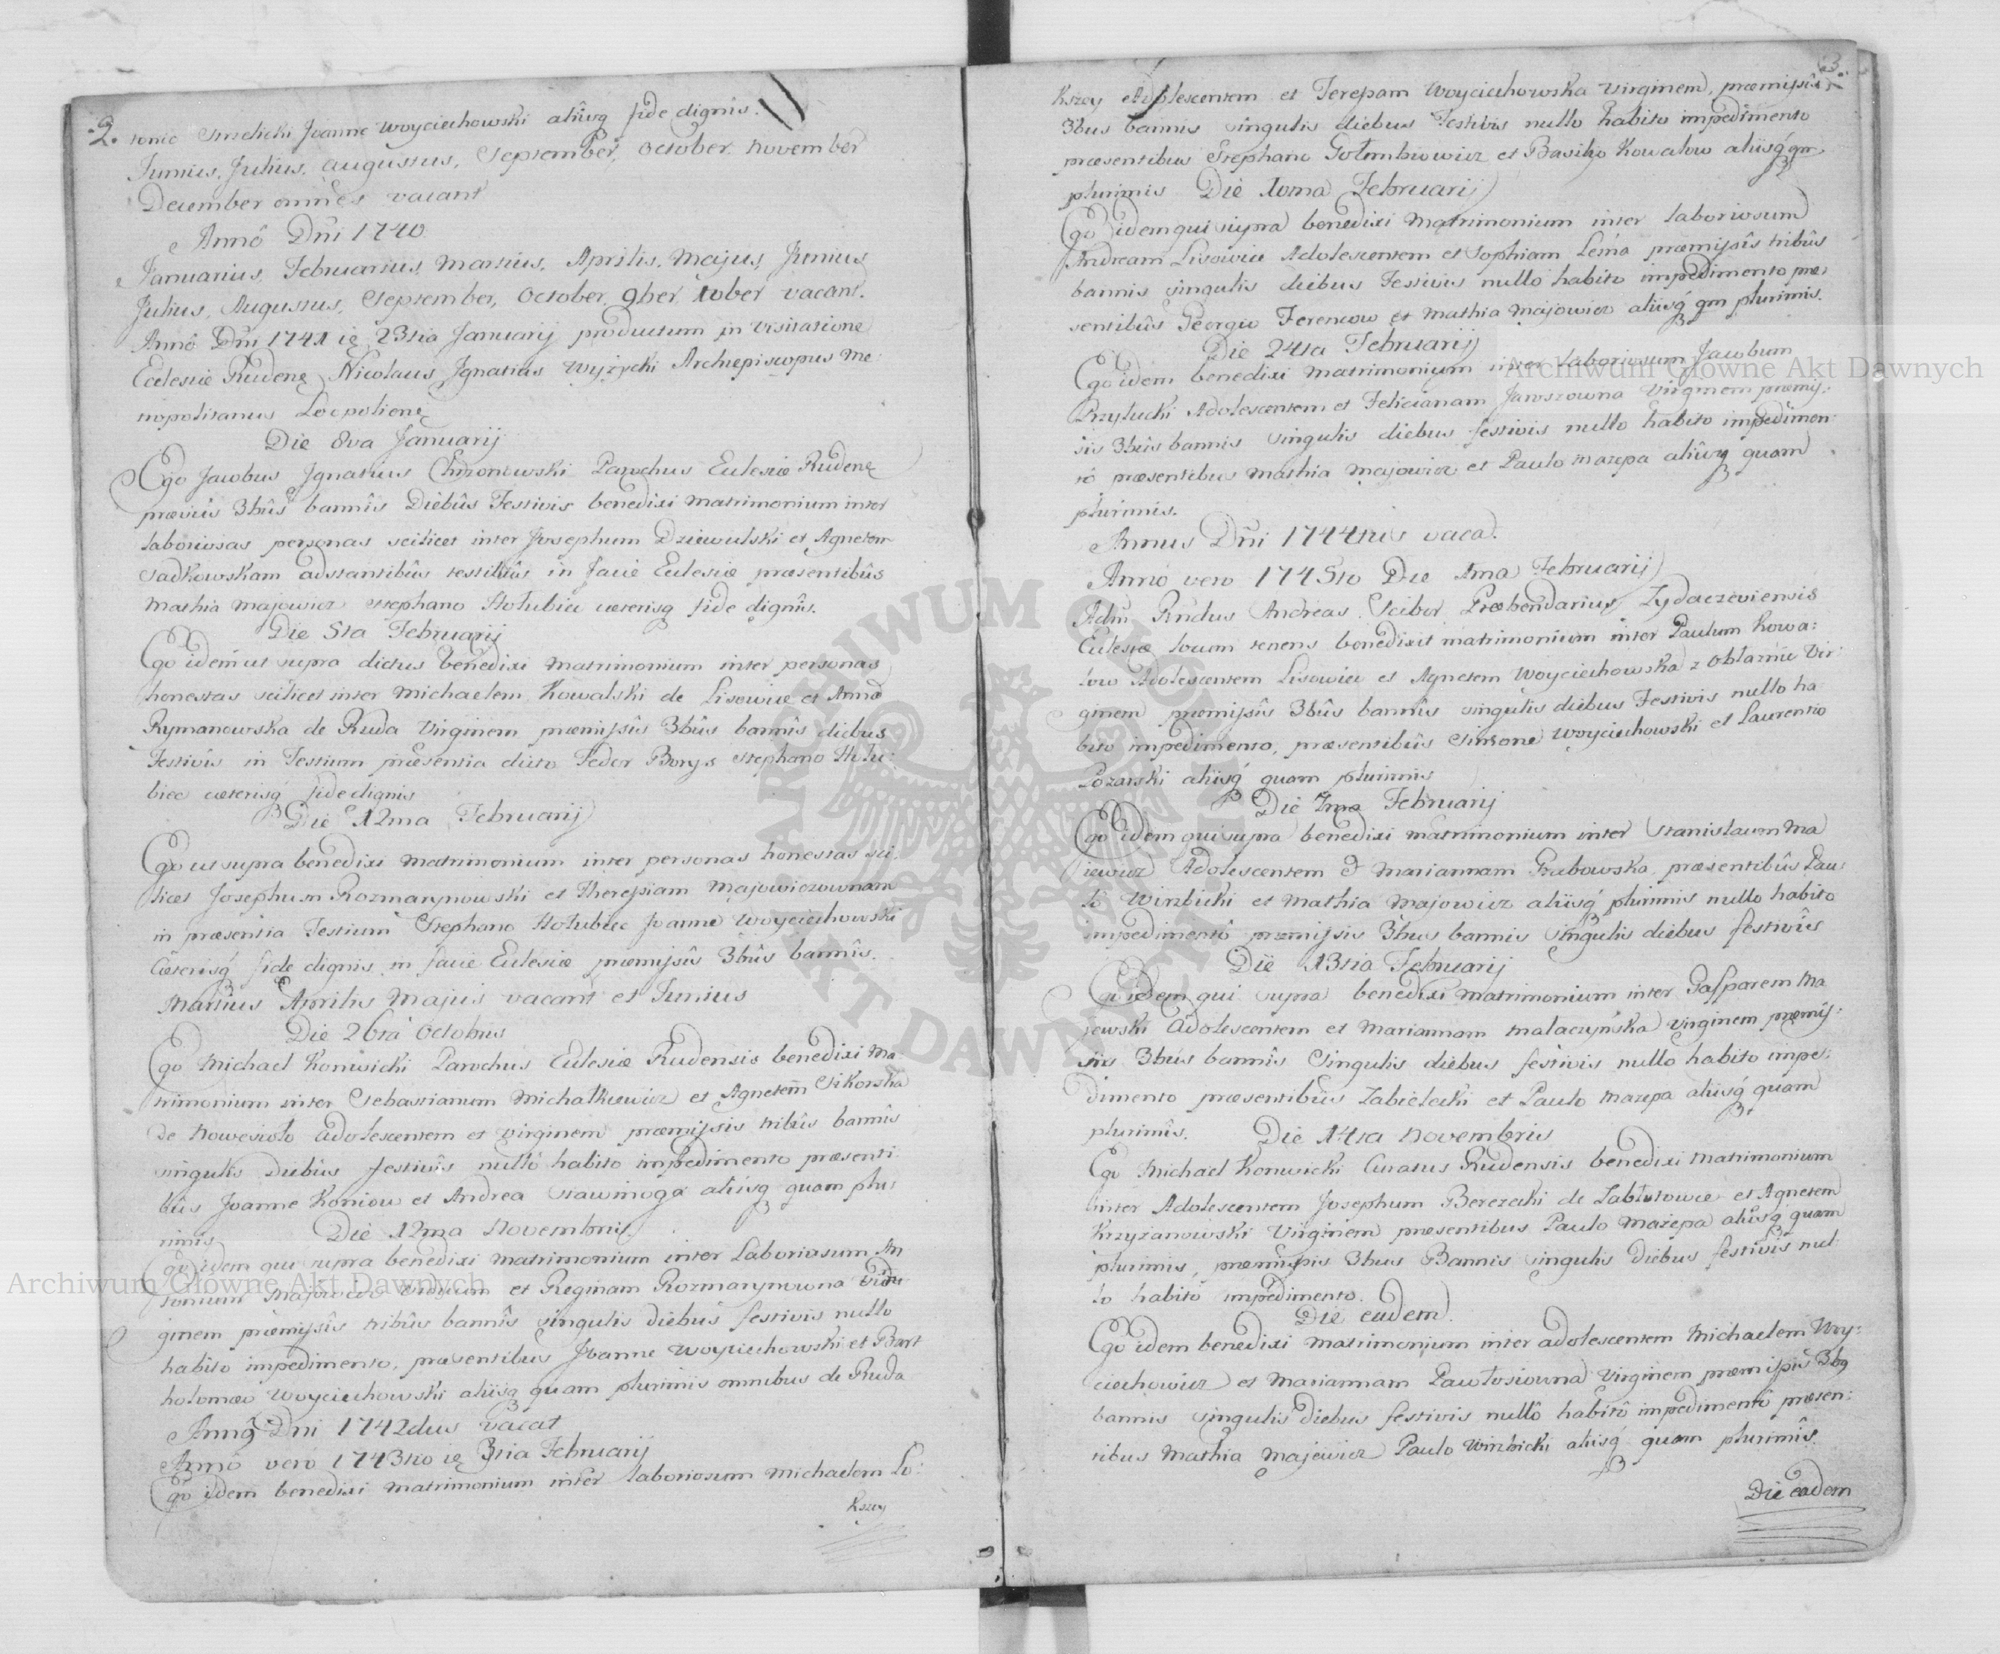 .2. tonio Joanne Woyciechowski aliisq fide dignis.
Junius, Julius, Augustus, September, October, November
December omnes vacant
Anno Dni 1740
Januarius, Februarius, Martius, Aprilis, Majus, Junius
Julius, Augustus, September, October, 9ber, 10ber vacant.
Anno Dni 1741 23tia Januarij productum in visitatione
Eclesiæ Rudenę Nicolaus Ignatius Wyżycki Archiepiscopus Me
tropolitanus Leopolienę
Die 8va Januarij
Ego Jacobus Ignatius Parochus Eclesiæ Rudenę
præviis 3bus bannis Diebus Festivis benedixi matrimonium inter
laboriosas personas scilicet inter Josephum Dziewulski et Agnetem
Sadkowskam adstantibus testibus in facie Eclesiæ præsentibus
Mathia Majowicz Stephano Hołubiec cæterisq fide dignis.
Die 5ta Februarij
Ego idem ut supra dictus benedixi matrimonium inter personas
honestas scilicet inter Michaelem Kowalski de Lisowice et Anna
Rymanowska de Ruda Virginem præmissis 3bus bannis diebus
Festivis in Testium præsentia dicto Fedor Borys Stephano Hołu:
biec cæterisq fide dignis
Die 12ma Februarij
Ego ut supra benedixi matrimonium inter personas honestas sci:
licet Josephum Rozmarynowski et Theresiam Majowiczownam
in præsentia Testium Stephano Hołubiec Joanne Woyciechowski
Cæterisq fide dignis in facie Eclesiæ præmissis 3bus bannis.
Martius Aprilis Majus vacant et Junius
Die 26ta Octobris
Ego Michael Konwicki Parochus Eclesiæ Rudensis benedixi Ma
trimonium inter Sebastianum Michałkiewicz et Agnetem Sikorska
de Nowesioło adolescentem et virginem præmissis tribus bannis
singulis Diebus festivis nullo habito impedimento præsenti
bus Joanne Koniow et Andrea aliisq quam plu:
rimis
Die 12ma Novembris
Ego idem qui supra benedixi matrimonium inter Laboriosum An
tonium Majowicz Viduum et Reginam Rozmarynowna Vir
ginem præmissis tribus bannis singulis diebus festivis nullo
habito impedimento, præsentibus Joanne Woyciechowski et Bart
holomæo Woyciechowski aliisq quam plurimis omnibus de Ruda
Anno Dni 1742dus vacat
Anno vero 1743tio 3tia Februarij
Ego idem benedixi matrimonium inter laboriosum Michaelem Lo:
kszey
3.
kszey Adolescentem et Teressam Woyciechowska virginem, præmissis
3bus bannis singulis diebus Festivis nullo habito impedimento
præsentibus Stephano Gołembiowicz et Basilio Kowalow aliisq qm
plurimis Die 10ma Februarij
Ego idem qui supra benedixi Matrimonium inter laboriosum
Andream Lisowice Adolescentem et Sophiam præmissis tribus
bannis singulis diebus Festivis nullo habito impedimento præ:
sentibus Georgio Ferencow et Mathia Majowicz aliisq qm plurimis.
Die 24ta Februarij
Ego idem benedixi Matrimonium inter laboriosum Jacobum
Przyłucki Adolescentem et Felicianam Jaroszowna Virginem præmis:
sis 3bus bannis singulis diebus festivis nullo habito impedimen
to præsentibus Mathia Majowicz et Paulo Mazepa aliisq quam
plurimis.
Annus Dni 1744tus vaca.
Anno vero 1745to Die 1ma Februarij
Adm Rndus Andreas Scibor Præbendarius Zydaczeviensis
Eclesiæ locum tenens benedixit matrimonium inter Paulum Kowa:
low Adolescentem Lisowiec et Agnetem Woyciechowska z Obłaznic Vir
ginem præmissis 3bus bannis singulis diebus Festivis nullo ha
bito impedimento, præsentibus Simone Woyciechowski et Laurentio
Łozanski aliisq quam plurimis
Die 7ma Februarij
Ego idem qui supra benedixi matrimonium inter Stanislaum Ma
iewicz Adolescentem & Mariannam Grabowska præsentibus Pau
lo Winbicki et Mathia Majowicz aliisq plurimis nullo habito
impedimento præmissis 3bus bannis singulis diebus festivis
Die 13tia Februarij
Ego idem qui supra benedixi matrimonium inter Gasparem Ma
jewski Adolescentem et Mariannam Malaczynska virginem præmis:
sis 3bus bannis singulis diebus festivis nullo habito impe:
dimento præsentibus Zabielecki et Paulo Mazepa aliisq quam
plurimis. Die 14ta Novembris
Ego Michael Konwicki Curatus Rudensis benedixi Matrimonium
inter Adolescentem Josephum Berezecki de Zabłotowce et Agnetem
Krzyzanowski Virginem præsentibus Paulo Mazepa aliisq quam
plurimis, præmissis 3bus Bannis singulis Diebus festivis nul
lo habito impedimento.
Die eadem
Ego idem benedixi Matrimonium inter adolescentem Michaelem Woy:
ciechowicz et Mariannam Pawłosiowna Virginem præmissis 3bq
bannis singulis diebus festivis nullo habito impedimento præsen:
tibus Mathia Majewicz Paulo Winbicki aliisq quam plurimis.
Die eadem
Archiwum Główne Akt Dawnych
Archiwum Główne Akt Dawnych
ARCHIWUM GŁÓWNE AKT DAWNYCH